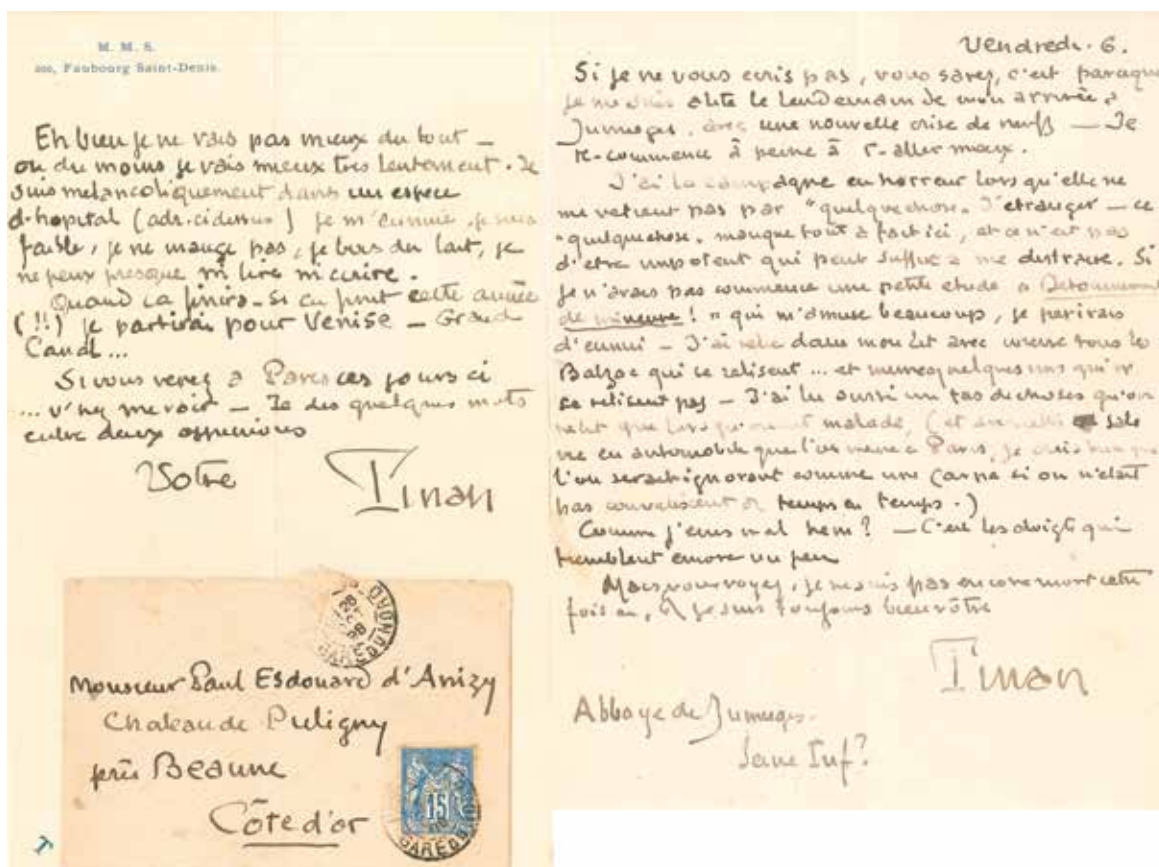 M. M. S.
200, Faubourg Saint-Denis.
Eh bien je ne vais pas mieux du tout —
ou du moins je vais mieux très lentement. Je
suis mélancoliquement dans un espece
d'hopital (adr. cidessus) je m'ennuie, je suis
faible, je ne mange pas, je bois du lait, je
ne peux presque ni lire ni ecrire.
Quand ca finira — Si ca finit cette année
(!!) je partirai pour Venise — Grand
Canal...
Si vous venez a Paris ces jours ci
... v'nez me voir — Je dis quelques mots
entre deux
Votre
Tinan
Monsieur Paul Esdouard d'Anizy
Chateau de Puligny
près Beaune
Côte d'or
15
GARE DU NORD
T
Vendredi. 6.
Si je ne vous ecris pas, vous savez, c'est parceque
je me suis alité le lendemain de mon arrivée à
Jumieges, avec une nouvelle crise de nerfs — Je
re-commence à peine à r-aller mieux.
J'ai la campagne en horreur lorsqu'elle ne
me retient pas par "quelquechose" d'etranger — ce
"quelquechose" manque tout a fait ici, et ce n'est pas
d'etre impotent qui peut suffire a me distraire. Si
je n'avais pas commencé une petite etude "Detournement
de mineure!" qui m'amuse beaucoup, je perirais
d'ennui — J'ai relu dans mon lit avec tous les
Balzac qui se relisent ... et memes quelques uns qui n'
se relisent pas — J'ai lu aussi un tas de choses qu'on
lit que lorsqu'on est malade, (et avec cette sale
vie en automobile que l'on mene à Paris, je crois bien que
l'on serait ignorant comme une carpe si on n'etait
pas convalescent de temps en temps.)
Comme j'ecris mal hein? — C'est les doigts qui
tremblent encore un peu
Mais vous voyez, je ne suis pas encore mort cette
fois ci, et je suis toujours bien vôtre
Tinan
Abbaye de Jumieges.
Seine Inf.